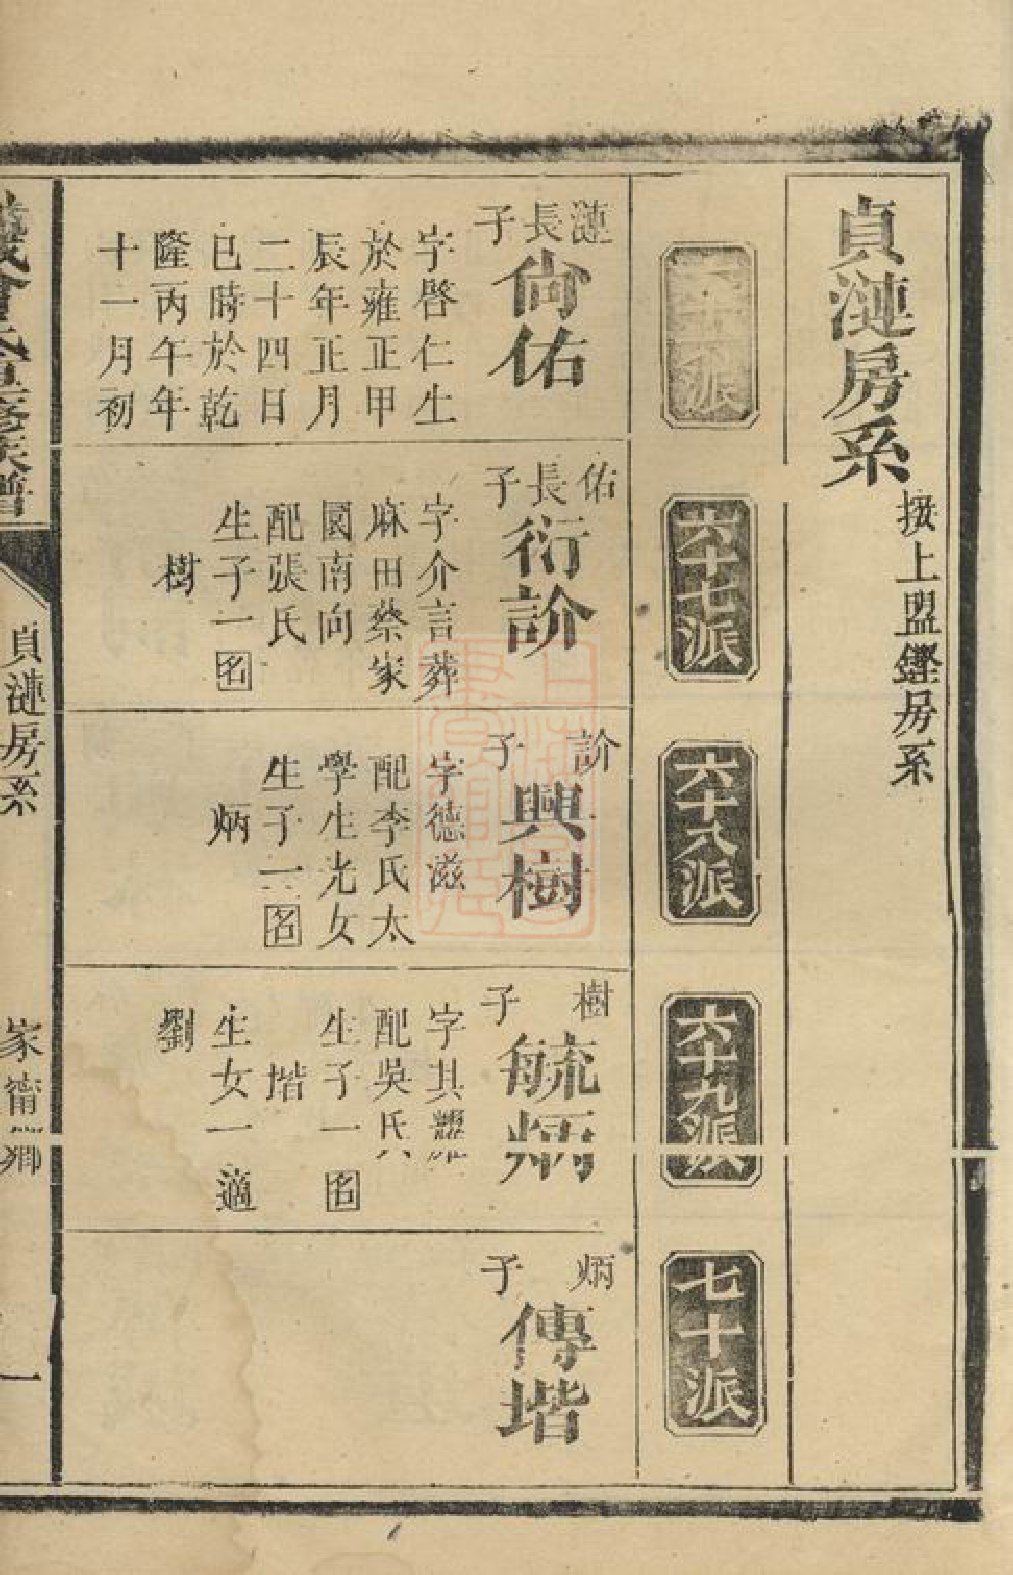 貞漣房系
按上盟鏗房系
六十七派
六十八派
六十九派
七十派
漣長子
尚佑
字啓仁生
於雍正甲
辰年正月
二十四日
巳時於乾
隆丙午年
十一月初
佑長子
衍訡
字介言葬
麻田蔡家
園南向
配張氏
生子一名
樹
訡子
興樹
字德滋
配李氏太
學生光女
生子一名
炳
樹子
毓炳
字其耀
配吳氏
生子一名
堦
生女一適
劉
炳子
傳堦
氏重修族譜
貞漣房系
一